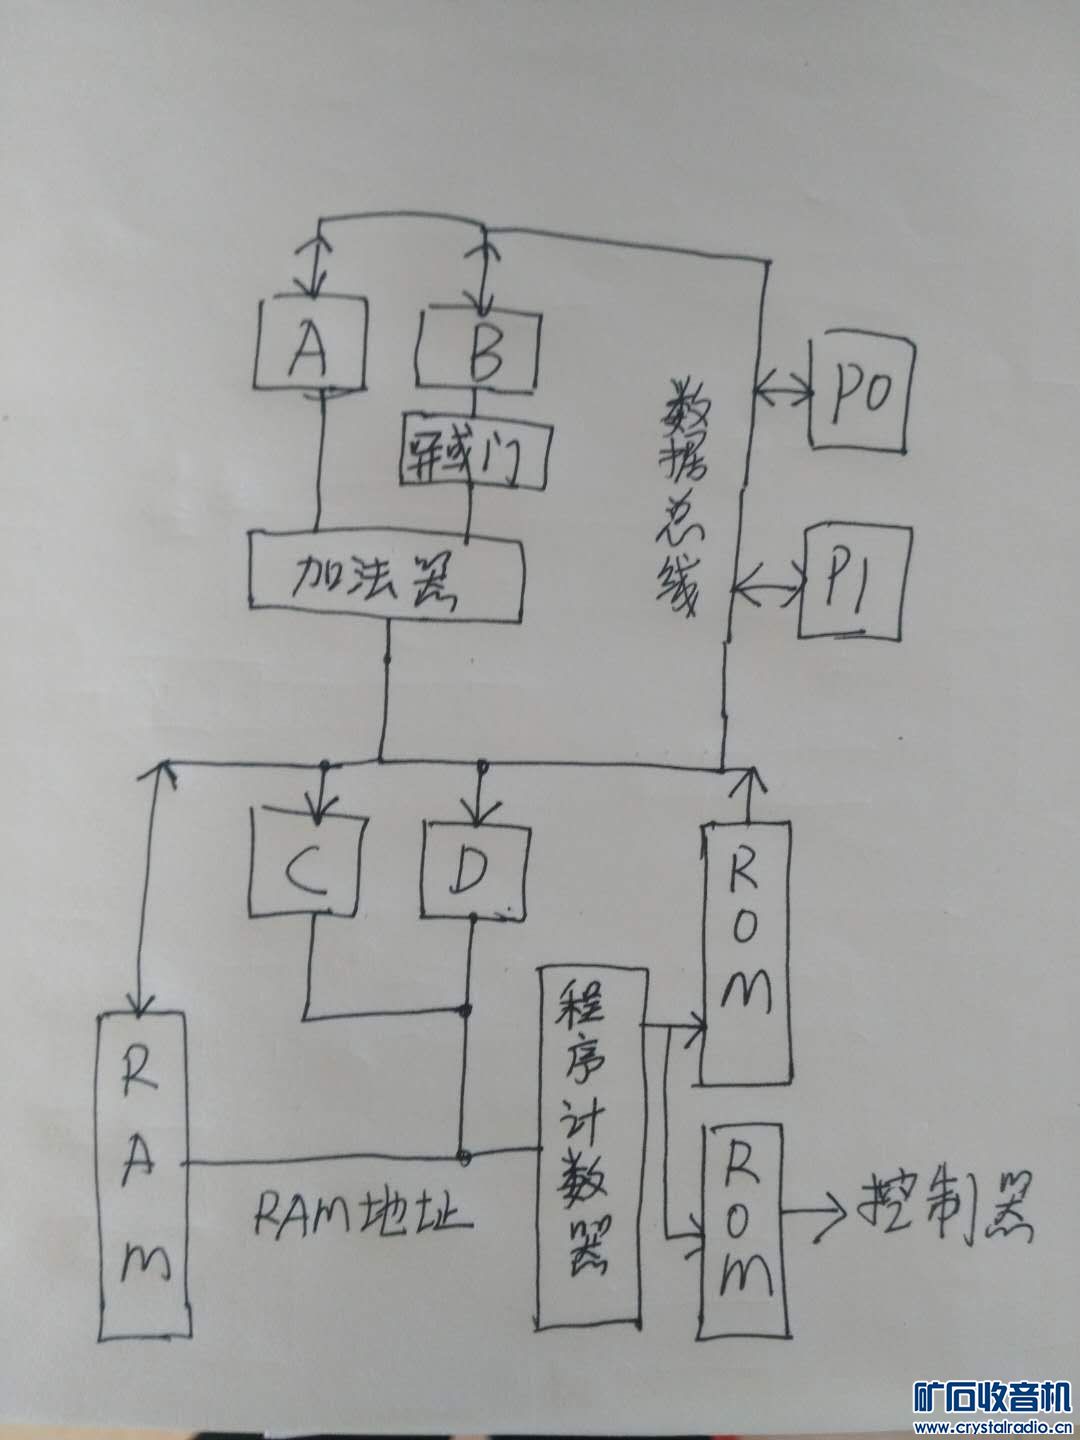 A
B
P0
异或门
数据总线
加法器
P1
C
D
ROM
程序计数器
RAM
ROM
控制器
RAM地址
矿石收音机
www.crystalradio.cn